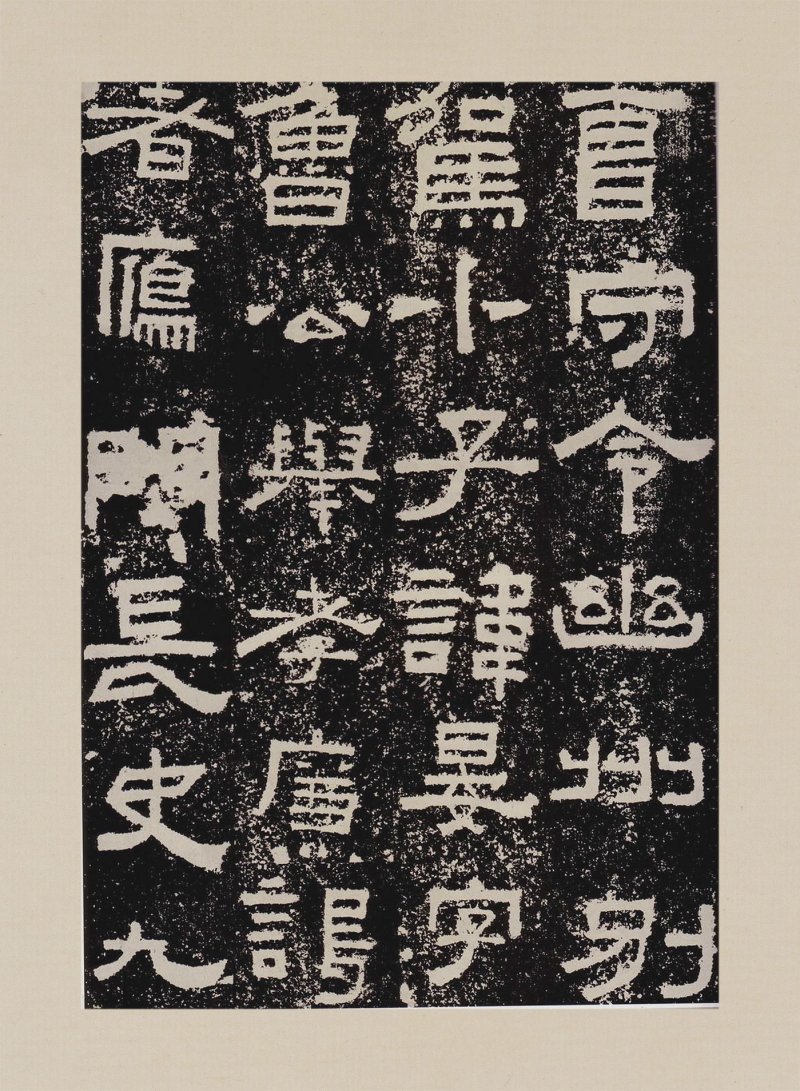 曹守令幽州別
駕卜子諱晏字
魯公舉孝廉謁
者鴈門長史九